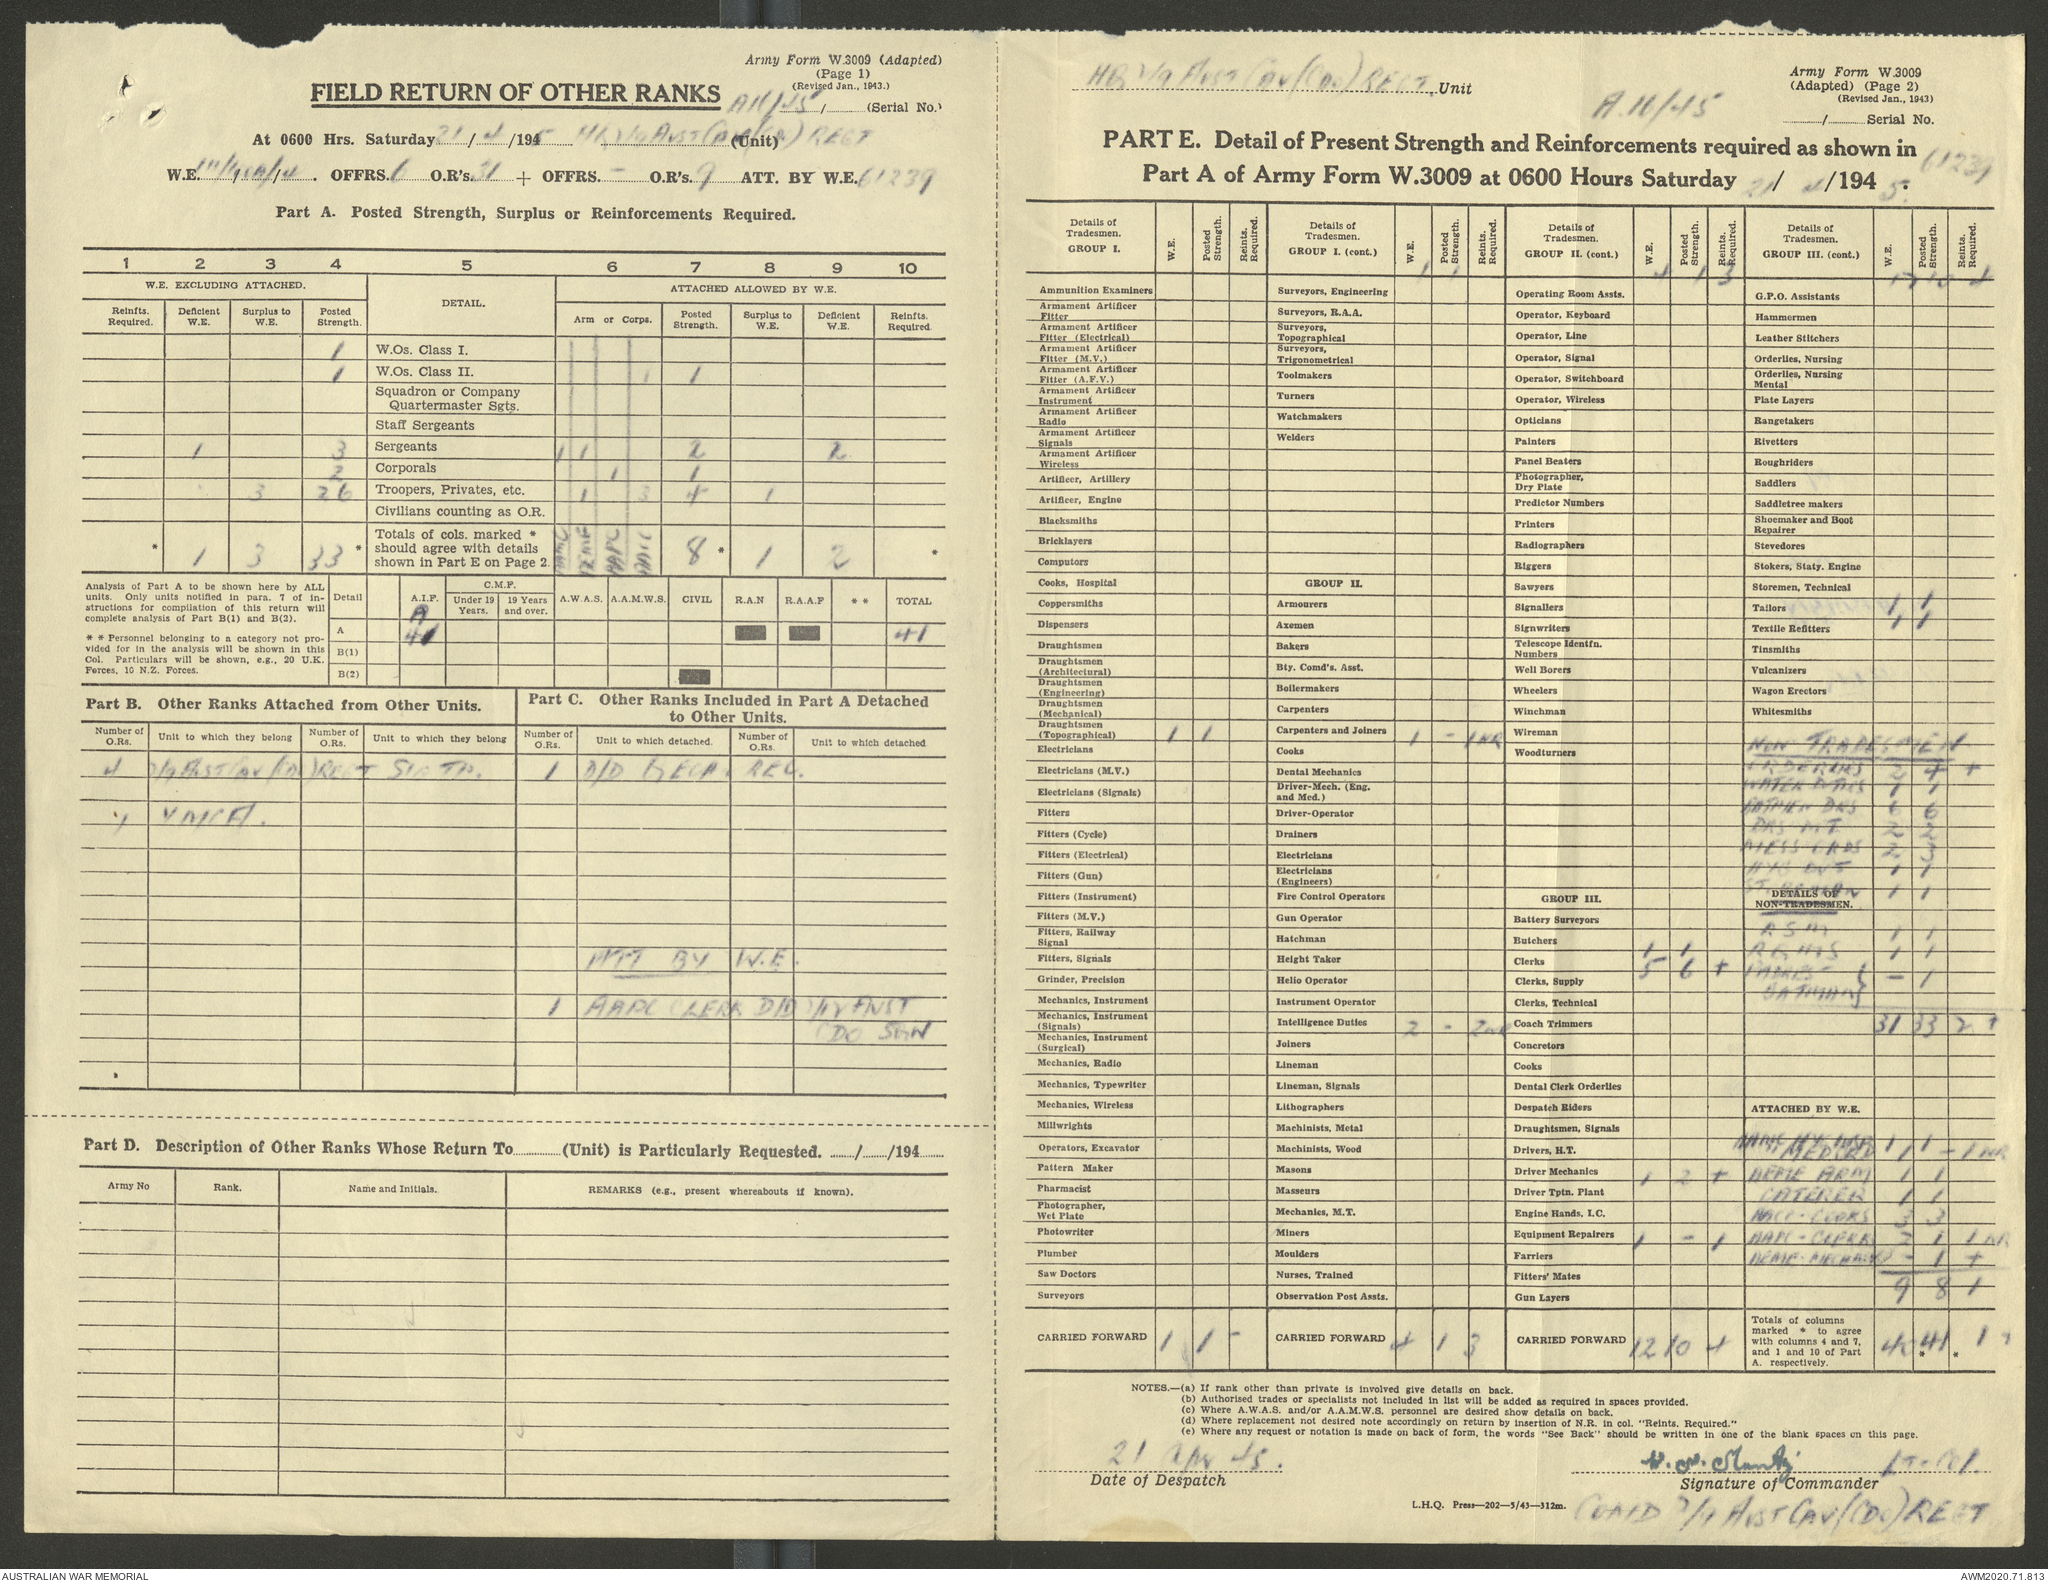 Army Form W.3009 (Adapted)
(Page 1)
(Revised Jan., 1943.)
FIELD RETURN OF OTHER RANKS A16/45 / (Serial No.)
At 0600 Hrs. Saturday 21/4/1945 HQ 2/9 Aust Cav (Cdo) REGT (Unit)
W.E. OFFRS. 6 O.R's. 31 + OFFRS. - O.R's. 9 ATT. BY W.E. 61239
Part A. Posted Strength, Surplus or Reinforcements Required.
1 2 3 4 5 6 7 8 9 10
W.E. EXCLUDING ATTACHED. DETAIL. ATTACHED ALLOWED BY W.E.
Reinfts. Required. Deficient W.E. Surplus to W.E. Posted Strength. Arm or Corps. Posted Strength. Surplus to W.E. Deficient W.E. Reinfts. Required.
1 W.Os. Class I.
1 W.Os. Class II. 1 1
Squadron or Company Quartermaster Sgts.
Staff Sergeants
1 3 Sergeants 1 1 2 2
2 Corporals 1 1
3 26 Troopers, Privates, etc. 1 3 4 1
Civilians counting as O.R.
* 1 3 33 * Totals of cols. marked * should agree with details shown in Part E on Page 2. AAMC AEME AAPC AACC 8 * 1 2 *
Analysis of Part A to be shown here by ALL units. Only units notified in para. 7 of instructions for compilation of this return will complete analysis of Part B(1) and B(2).
* * Personnel belonging to a category not provided for in the analysis will be shown in this Col. Particulars will be shown, e.g., 20 U.K. Forces, 10 N.Z. Forces.
Detail A.I.F. C.M.F. Under 19 Years. 19 Years and over. A.W.A.S. A.A.M.W.S. CIVIL R.A.N R.A.A.F * * TOTAL
A 41 41
B(1)
B(2)
Part B. Other Ranks Attached from Other Units.
Part C. Other Ranks Included in Part A Detached to Other Units.
Number of O.Rs. Unit to which they belong Number of O.Rs. Unit to which they belong Number of O.Rs. Unit to which detached. Number of O.Rs. Unit to which detached
4 2/9 Aust Cav (Cdo) REGT SIG TP. 1 D/D 1 ECH. REC.
1 YMCA.
ATT BY W.E.
1 AAPC CLERK D/D AUST
CDO SQN
Part D. Description of Other Ranks Whose Return To (Unit) is Particularly Requested. / /194
Army No Rank. Name and Initials. REMARKS (e.g., present whereabouts if known).
HQ 2/9 Aust Cav (Cdo) REGT. Unit
Army Form W.3009
(Adapted) (Page 2)
(Revised Jan., 1943)
A.16/45
/ Serial No.
PART E. Detail of Present Strength and Reinforcements required as shown in
Part A of Army Form W.3009 at 0600 Hours Saturday 21/4/1945.
61239
Details of Tradesmen. GROUP I. W.E. Posted Strength. Reints. Required.
Ammunition Examiners
Armament Artificer Fitter
Armament Artificer Fitter (Electrical)
Armament Artificer Fitter (M.V.)
Armament Artificer Fitter (A.F.V.)
Armament Artificer Instrument
Armament Artificer Radio
Armament Artificer Signals
Armament Artificer Wireless
Artificer, Artillery
Artificer, Engine
Blacksmiths
Bricklayers
Computors
Cooks, Hospital
Coppersmiths
Dispensers
Draughtsmen
Draughtsmen (Architectural)
Draughtsmen (Engineering)
Draughtsmen (Mechanical)
Draughtsmen (Topographical) 1 1
Electricians
Electricians (M.V.)
Electricians (Signals)
Fitters
Fitters (Cycle)
Fitters (Electrical)
Fitters (Gun)
Fitters (Instrument)
Fitters (M.V.)
Fitters, Railway Signal
Fitters, Signals
Grinder, Precision
Mechanics, Instrument
Mechanics, Instrument (Signals)
Mechanics, Instrument (Surgical)
Mechanics, Radio
Mechanics, Typewriter
Mechanics, Wireless
Millwrights
Operators, Excavator
Pattern Maker
Pharmacist
Photographer, Wet Plate
Photowriter
Plumber
Saw Doctors
Surveyors
CARRIED FORWARD 1 1 -
Details of Tradesmen. GROUP I. (cont.) W.E. Posted Strength. Reints. Required.
1 1
Surveyors, Engineering
Surveyors, R.A.A.
Surveyors, Topographical
Surveyors, Trigonometrical
Toolmakers
Turners
Watchmakers
Welders
GROUP II.
Armourers
Axemen
Bakers
Bty. Comd's. Asst.
Boilermakers
Carpenters
Carpenters and Joiners 1 - 1 NR
Cooks
Dental Mechanics
Driver-Mech. (Eng. and Med.)
Driver-Operator
Drainers
Electricians
Electricians (Engineers)
Fire Control Operators
Gun Operator
Hatchman
Height Taker
Helio Operator
Instrument Operator
Intelligence Duties 2 - 2 NR
Joiners
Lineman
Lineman, Signals
Lithographers
Machinists, Metal
Machinists, Wood
Masons
Masseurs
Mechanics, M.T.
Miners
Moulders
Nurses, Trained
Observation Post Assts.
CARRIED FORWARD 4 1 3
Details of Tradesmen. GROUP II. (cont.) W.E. Posted Strength. Reints. Required.
4 1 3
Operating Room Assts.
Operator, Keyboard
Operator, Line
Operator, Signal
Operator, Switchboard
Operator, Wireless
Opticians
Painters
Panel Beaters
Photographer, Dry Plate
Predictor Numbers
Printers
Radiographers
Riggers
Sawyers
Signallers
Signwriters
Telescope Identfn. Numbers
Well Borers
Wheelers
Winchman
Wireman
Woodturners
GROUP III.
Battery Surveyors
Butchers 1 1
Clerks 5 6 +
Clerks, Supply
Clerks, Technical
Coach Trimmers
Concretors
Cooks
Dental Clerk Orderlies
Despatch Riders
Draughtsmen, Signals
Drivers, H.T.
Driver Mechanics 1 2 +
Driver Tptn. Plant
Engine Hands, I.C.
Equipment Repairers 1 - 1
Farriers
Fitters' Mates
Gun Layers
CARRIED FORWARD 12 10 4
Details of Tradesmen. GROUP III. (cont.) W.E. Posted Strength. Reints. Required.
G.P.O. Assistants
Hammermen
Leather Stitchers
Orderlies, Nursing
Orderlies, Nursing Mental
Plate Layers
Rangetakers
Rivetters
Roughriders
Saddlers
Saddletree makers
Shoemaker and Boot Repairer
Stevedores
Stokers, Staty. Engine
Storemen, Technical
Tailors 1 1
Textile Refitters 1 1
Tinsmiths
Vulcanizers
Wagon Erectors
Whitesmiths
NON TRADESMEN
ORDERLIES 2 4 +
WATER DUTIES 1 1
BATMEN DRS 6 6
DRS MT 2 2
MESS ORDS 2 3
HYG DUT 1 1
1 1
DETAILS OF NON-TRADESMEN.
RSM 1 1
RQMS 1 1
PADRES BATMAN } - 1
31 33 2 +
ATTACHED BY W.E.
AAMC HYG 1 1
MED ORD 1 - 1 NR
AEME ARM 1 1
CATERER 1 1
AACC - COOKS 3 3
AAPC - CLERKS 2 1 1 NR
AEME - MECHANIC - 1 +
9 8 1
Totals of columns marked * to agree with columns 4 and 7, and 1 and 10 of Part A. respectively. 40 * 41 * 1
NOTES.—(a) If rank other than private is involved give details on back.
(b) Authorised trades or specialists not included in list will be added as required in spaces provided.
(c) Where A.W.A.S. and/or A.A.M.W.S. personnel are desired show details on back.
(d) Where replacement not desired note accordingly on return by insertion of N.R. in col. "Reints. Required."
(e) Where any request or notation is made on back of form, the words "See Back" should be written in one of the blank spaces on this page.
21 Apr 45.
Date of Despatch
Lt-Col.
Signature of Commander
L.H.Q. Press—202—5/43—312m.
Comd 2/9 Aust Cav (Cdo) REGT
AUSTRALIAN WAR MEMORIAL
AWM2020.71.813